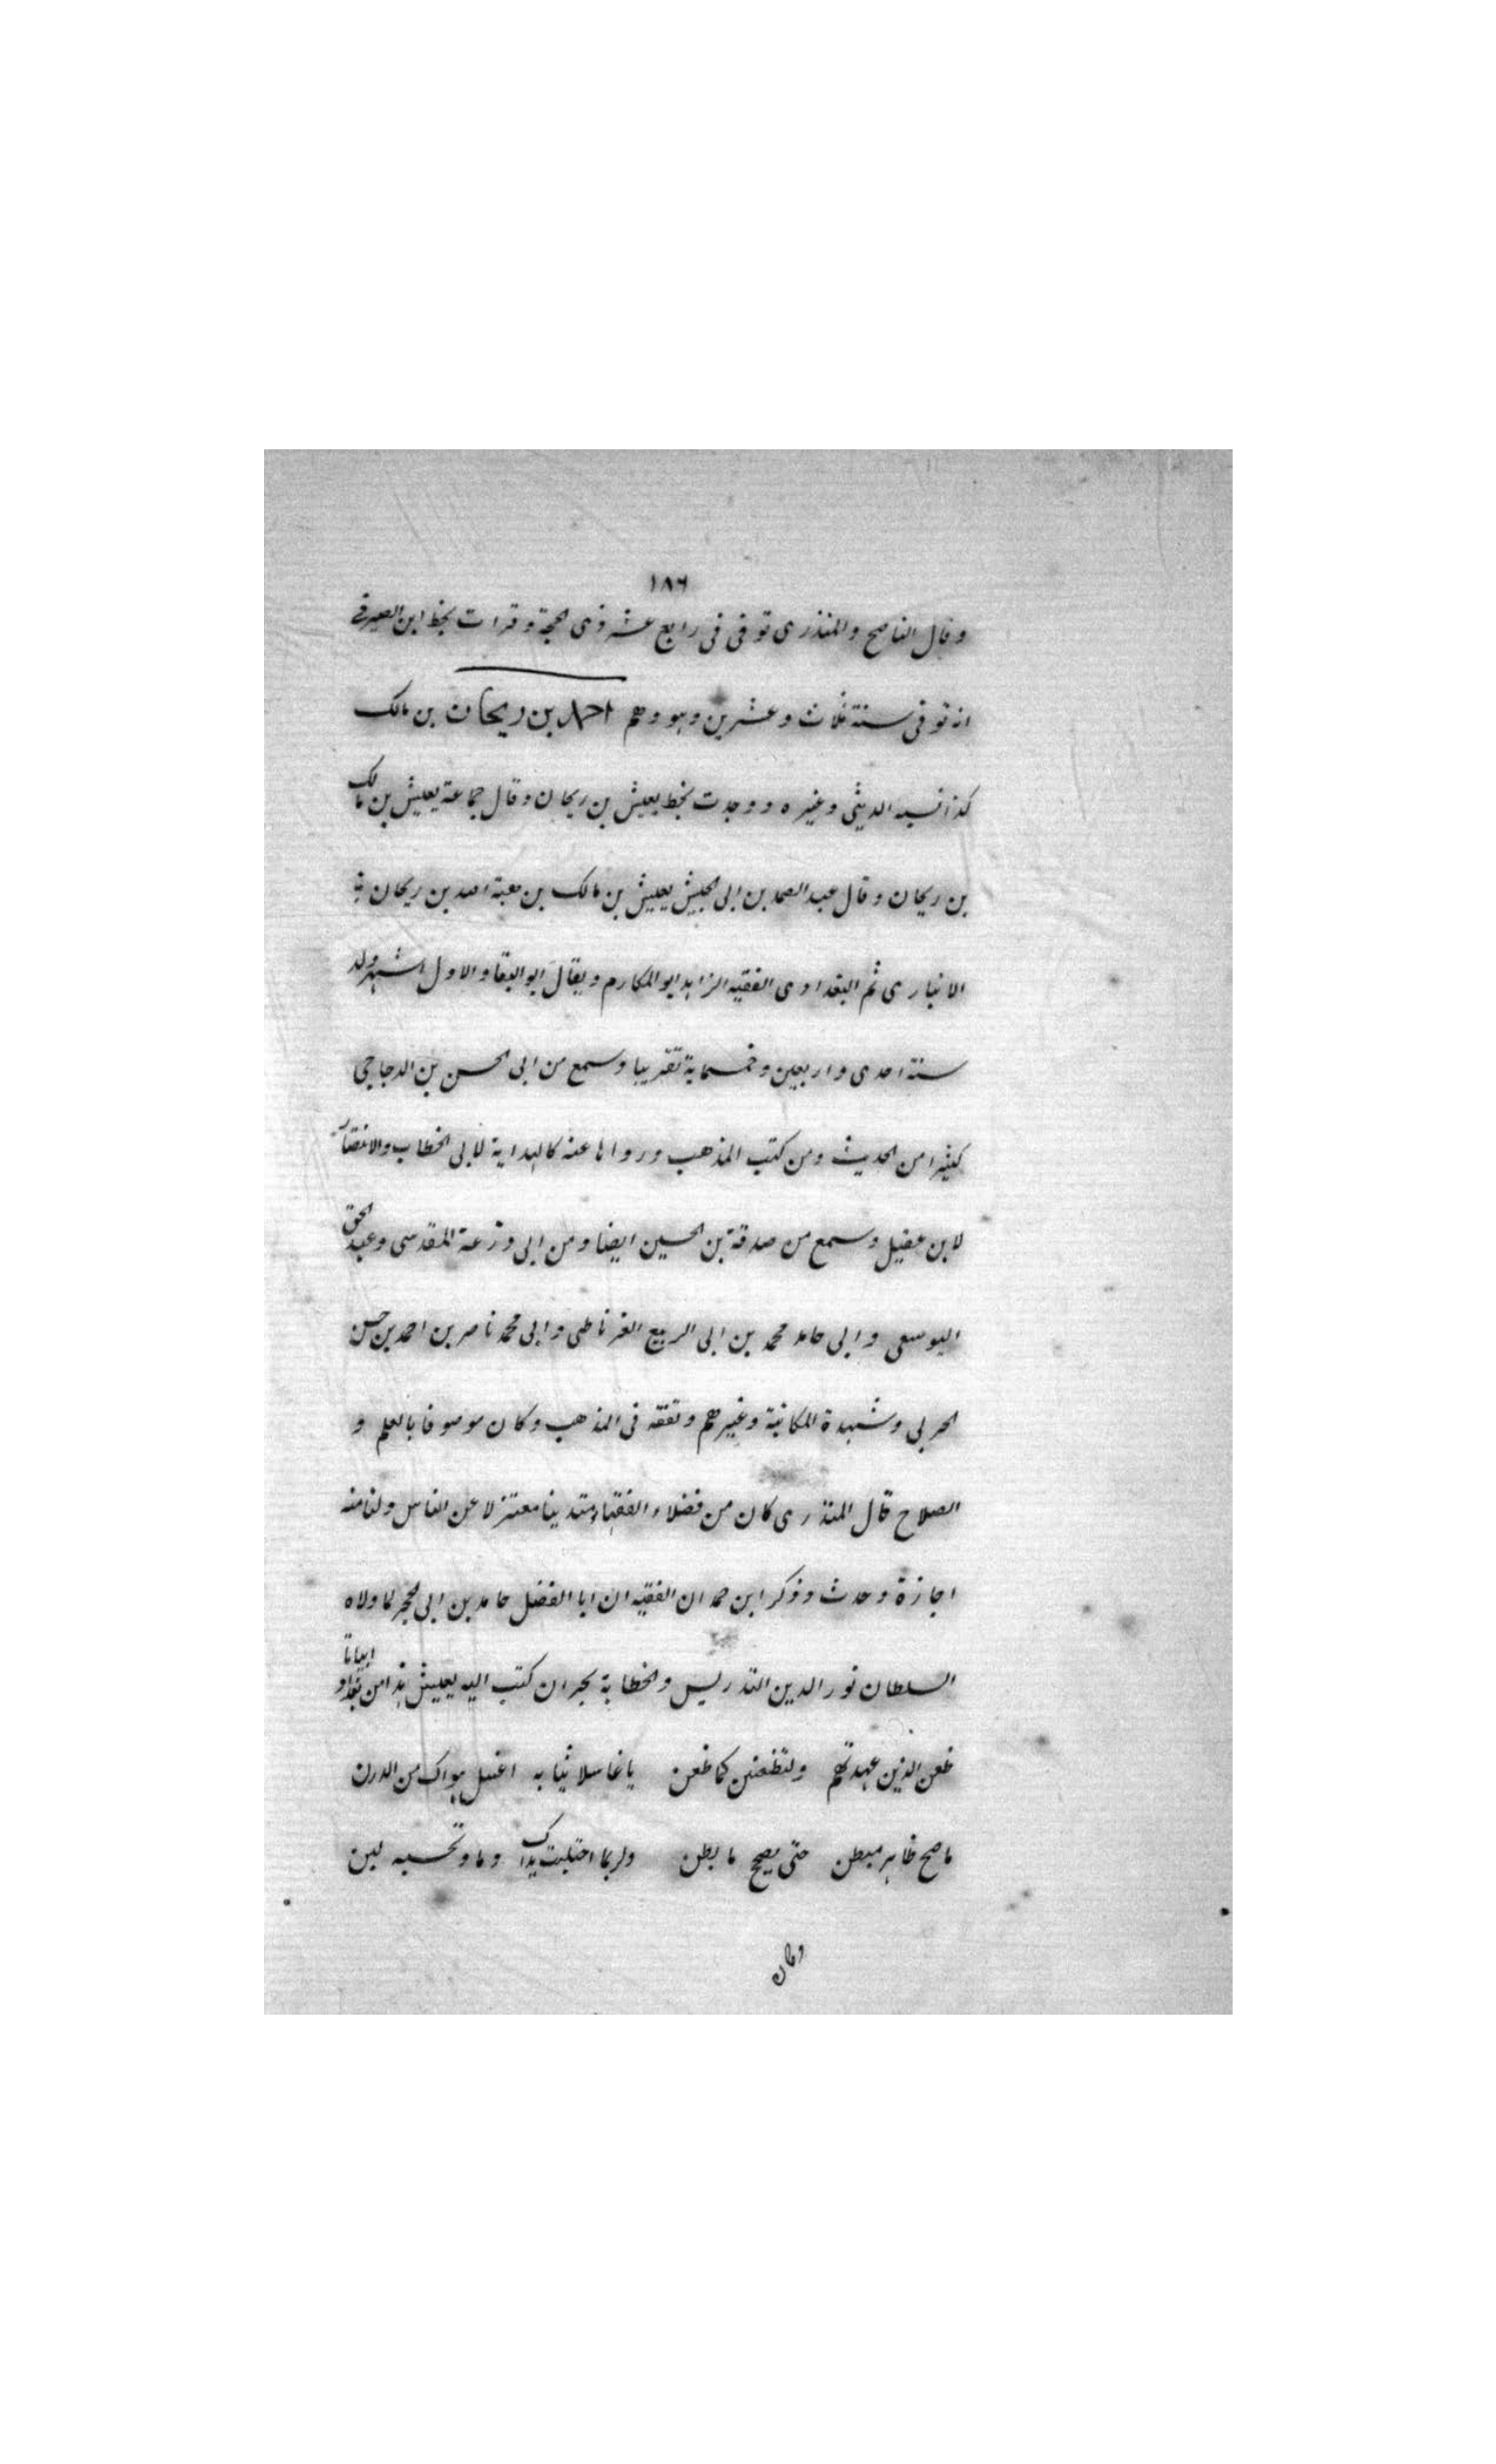 ١٨٦
وقال الناصح والمنذرى توفى فى رابع عشر ذى الحجة وقرات بخط ابن الصيرفے
انه توفى سنة ثلاث وعشرين وهو وهم احمد بن ريحان بن مالك
كذا نسبه الدبيثى وغيره ووجدت بخط يعيش بن ريحان وقال جماعة يعيش بن مالك
بن ريحان وقال عبد الصمد بن ابى الجيش يعيش بن مالك بن هبة الله بن ريحان
الانبارى ثم البغدادى الفقيه الزاهد ابو المكارم ويقال ابو البقا والاول اشهر ولد
سنة احدى واربعين وخمسماية تقريبا وسمع من ابى الحسن بن الدجاجى
كثيرا من الحديث ومن كتب المذهب ورواها عنه كالهداية لابى الخطاب والانتصار
لابن عقيل وسمع من صدقة بن الحسين ايضا ومن ابى وزرعة المقدسى وعبد الحق
اليوسفى وابى حامد محمد بن ابى الربيع الغرناطى وابى محمد ناصر بن احمد بن حسن
الحربى وشهدة الكاتبة وغيرهم وتفقه فى المذهب وكان موصوفا بالعلم و
الصلاح قال المنذرى كان من فضلاء الفقهاء متدينا معتزلا عن الناس ولنا منه
اجازة وحدث وذكر ابن حمدان الفقيه ان ابا الفضل حامد بن ابى الحجر لما ولاه
السلطان نور الدين التدريس والخطابة بحران كتب اليه يعيش هذا من بغداد ابياتا
ظعن الذين عهدتهم ولتظعنن كما ظعن يا غاسلا ثيابه اغسل هواك من الدرن
ما صح ظاهر مبطن حتى يصح ما بطن ولربما احتلبت يداك وما وتحسبه لبن
وكان